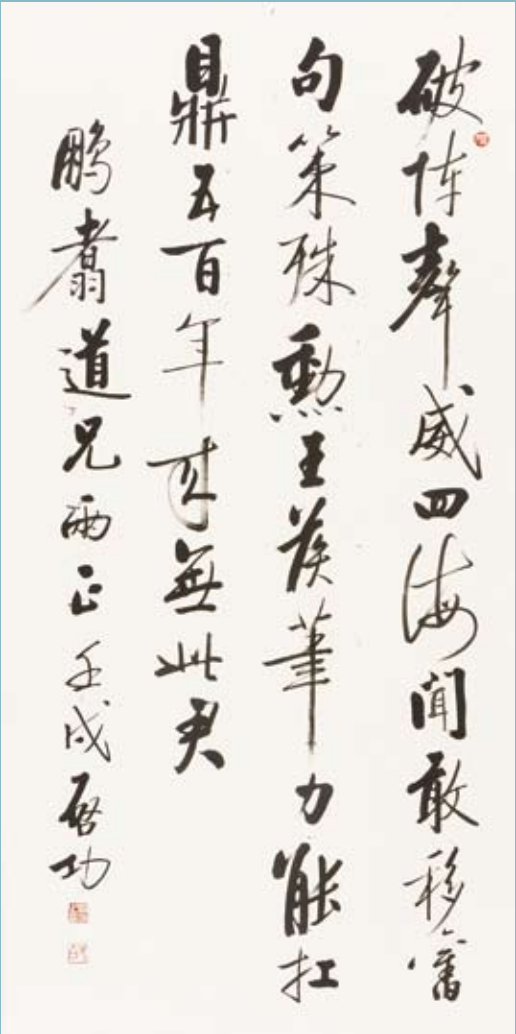 破陣聲威四海聞敢移舊
句策殊勳王侯筆力能扛
鼎五百年來無此君
鵬翥道兄兩正 壬戌 啓功